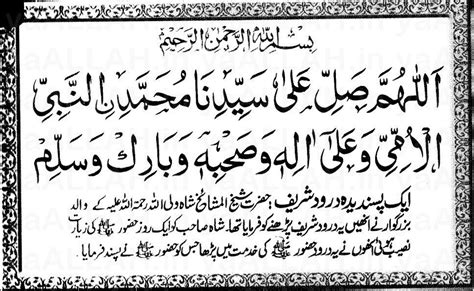 بِسْمِ اللهِ الرَّحْمٰنِ الرَّحِيْمِ
اَللّٰهُمَّ صَلِّ عَلٰى سَيِّدِنَا مُحَمَّدِنِ النَّبِيِّ
الْاُمِّيِّ وَعَلٰى اٰلِهٖ وَصَحْبِهٖ وَبَارِكْ وَسَلِّمْ
ایک پسندیدہ درود شریف: حضرت شیخ المشائخ شاہ ولی اللہ رحمۃ اللہ علیہ کے والد
بزرگوار نے انھیں یہ درود شریف پڑھنے کو فرمایا تھا۔ شاہ صاحب کو ایک روز حضور ﷺ کی زیارت
نصیب ہوئی انھوں نے یہ درود حضور ﷺ کی خدمت میں پڑھا جس کو حضور ﷺ نے پسند فرمایا۔